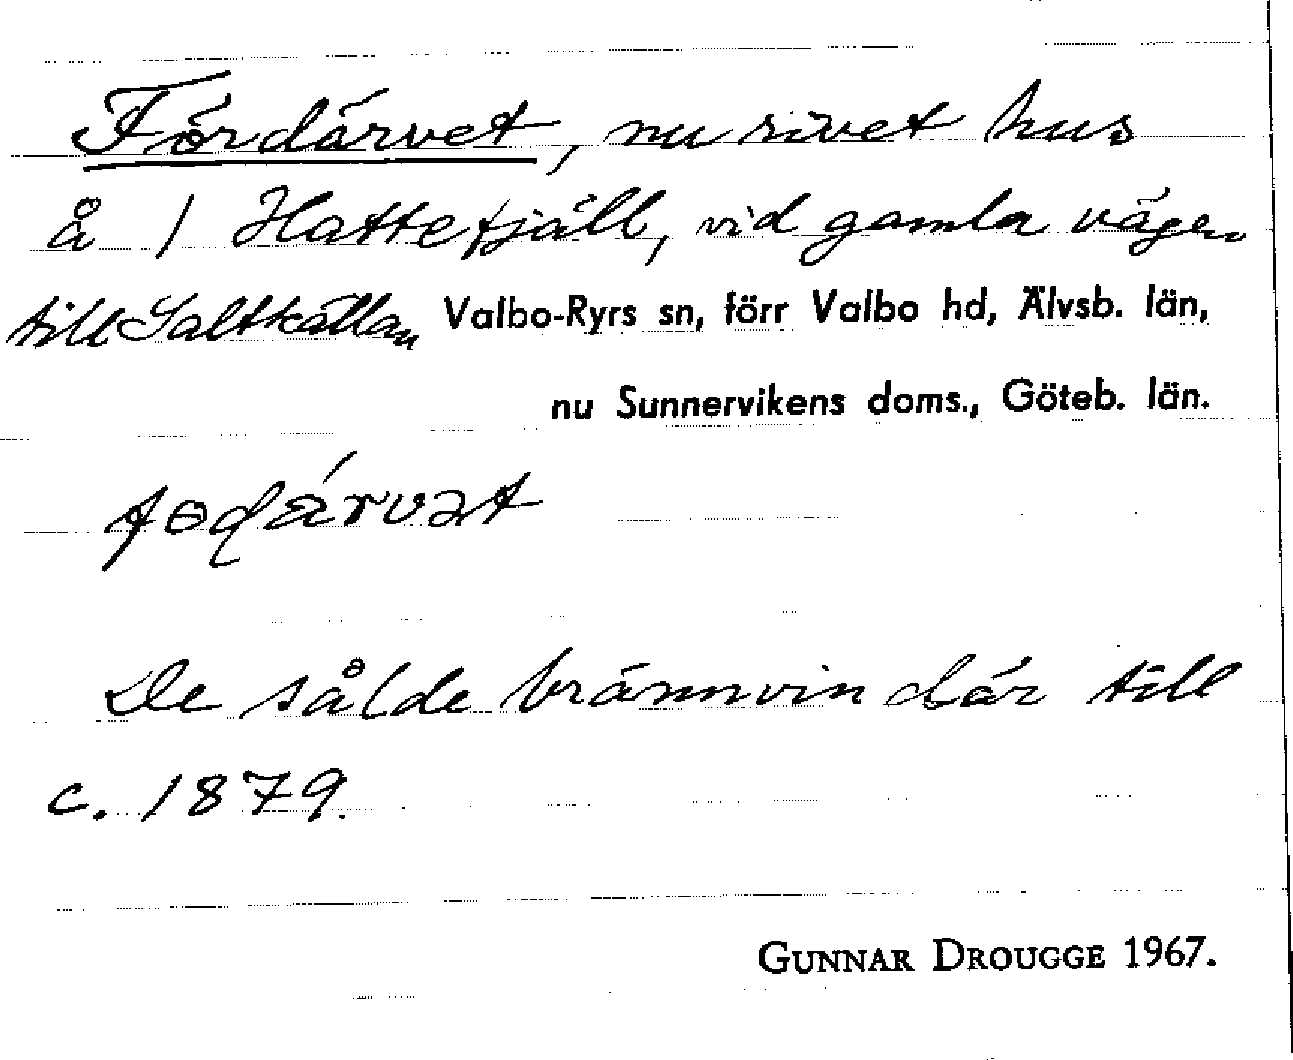 Fördärvet, nu rivet hus
å 1 Hattefjäll, vid gamla vägen
till Saltkällan Valbo-Ryrs sn, förr Valbo hd, Älvsb. län,
nu Sunnervikens doms., Göteb. län.
fɵɖárvət
De sålde brännvin där till
c. 1879.
GUNNAR DROUGGE 1967.